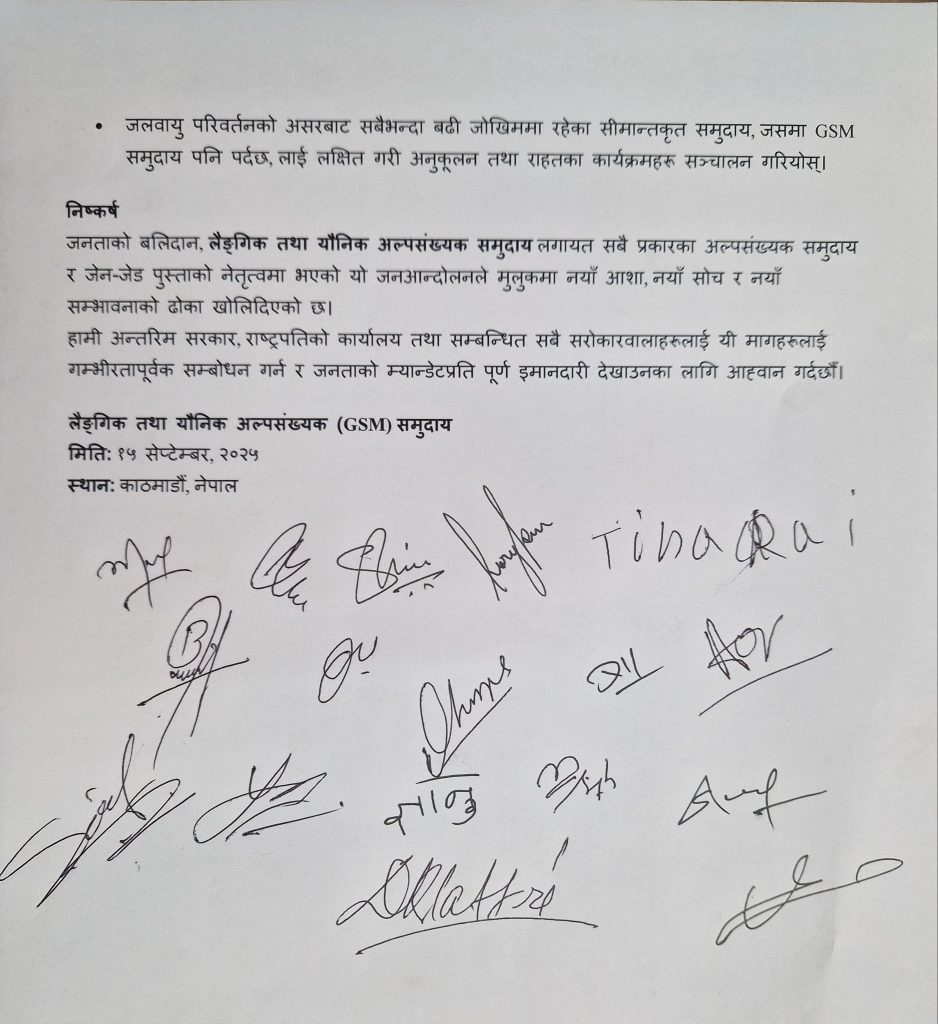 • जलवायु परिवर्तनको असरबाट सबैभन्दा बढी जोखिममा रहेका सीमान्तकृत समुदाय, जसमा GSM
समुदाय पनि पर्दछ, लाई लक्षित गरी अनुकूलन तथा राहतका कार्यक्रमहरू सञ्चालन गरियोस्।
निष्कर्ष
जनताको बलिदान, लैङ्गिक तथा यौनिक अल्पसंख्यक समुदाय लगायत सबै प्रकारका अल्पसंख्यक समुदाय
र जेन-जेड पुस्ताको नेतृत्वमा भएको यो जनआन्दोलनले मुलुकमा नयाँ आशा, नयाँ सोच र नयाँ
सम्भावनाको ढोका खोलिदिएको छ।
हामी अन्तरिम सरकार, राष्ट्रपतिको कार्यालय तथा सम्बन्धित सबै सरोकारवालाहरूलाई यी मागहरूलाई
गम्भीरतापूर्वक सम्बोधन गर्न र जनताको म्यान्डेटप्रति पूर्ण इमानदारी देखाउनका लागि आह्वान गर्दछौँ।
लैङ्गिक तथा यौनिक अल्पसंख्यक (GSM) समुदाय
मिति: १५ सेप्टेम्बर, २०२५
स्थान: काठमाडौं, नेपाल
Tina Rai
सानु